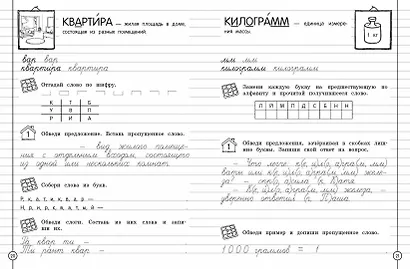 КВАРТИРА — жилая площадь в доме,
состоящая из разных помещений.
вар вар
квартира квартира
Отгадай слово по шифру.
К Т Б
У В П
Р И А
Обведи предложение. Вставь пропущенное слово.
— вид жилого помеще-
ния с отдельным входом, состоящего
из одной или нескольких комнат.
Собери слова из букв.
Обведи слоги. Составь из них слова и запи-
ши их.
Та квар ти —
Ти рант квар —
20
КИЛОГРАММ — единица измере-
ния массы.
1 кг
мм мм
килограмм килограмм
Замени каждую букву на предшествующую по
алфавиту и прочитай получившееся слово.
Обведи предложения, зачёркивая в скобках лиш-
ние буквы. Запиши свой ответ на вопрос.
— Что легче:
ваты или
леза? —
железа, —
уверенно ответил
Обведи пример и допиши пропущенное слово.
1000 граммов = 1
21